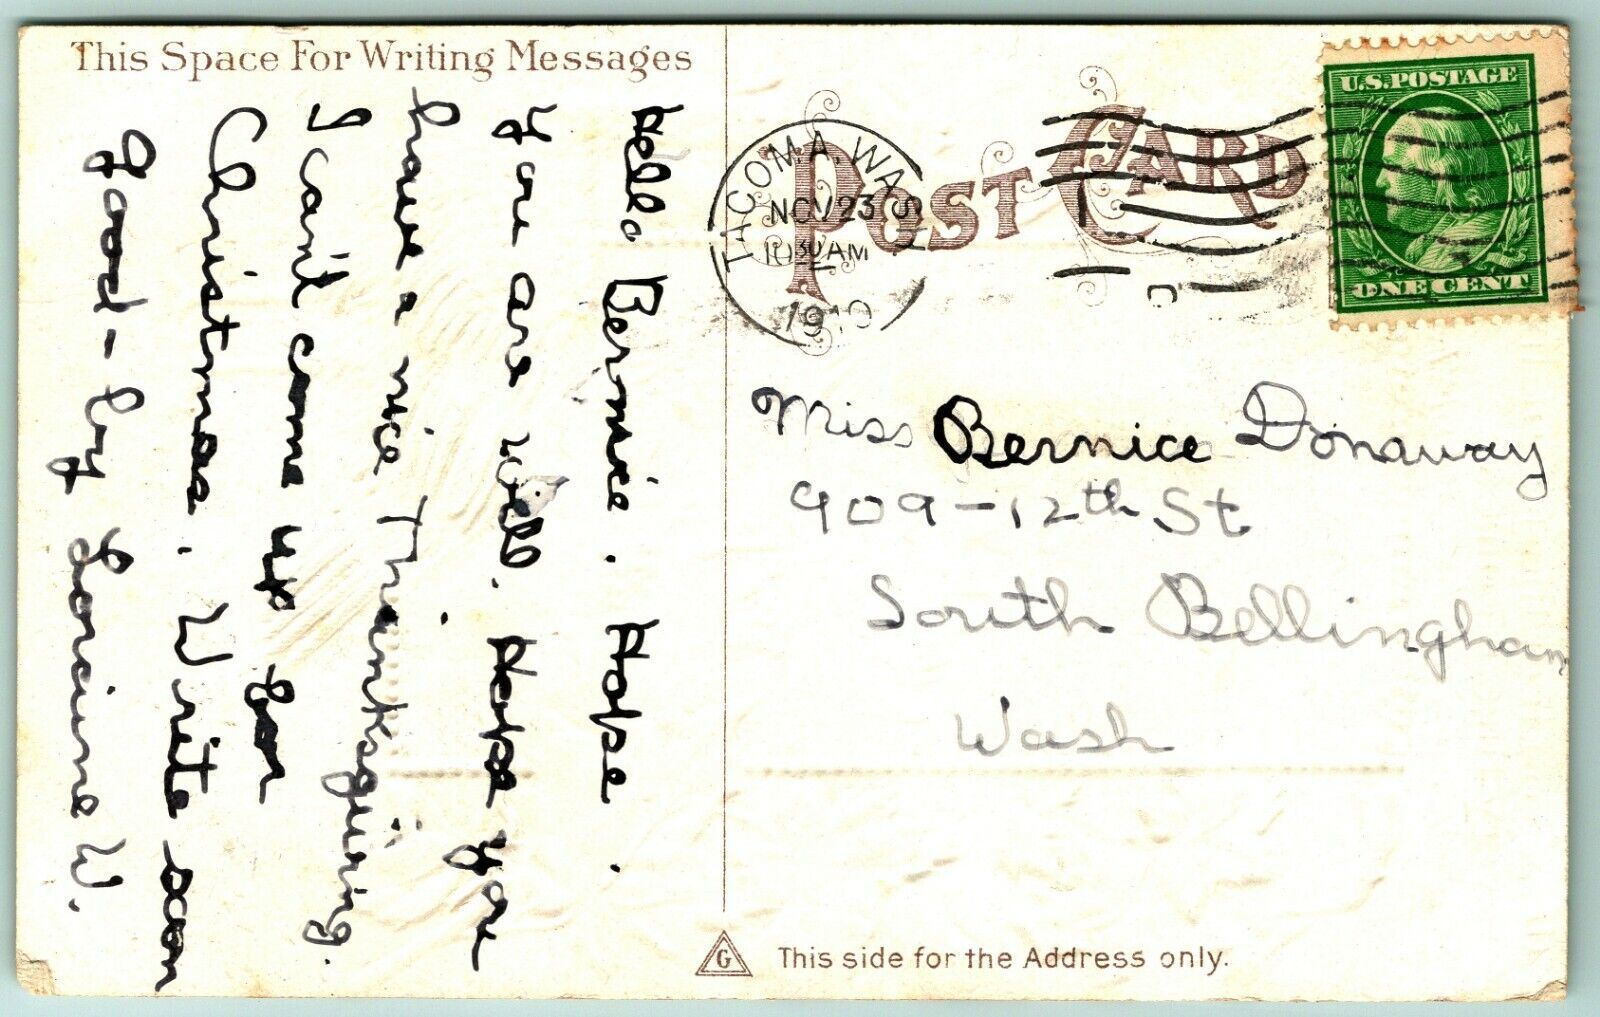 This Space For Writing Messages
Hello Bernice. Hope.
you are well. Hope you
have a nice Thanksgiving.
I cant come up for
Christmas. Write soon
Good-by Loraine W.
POST CARD
TACOMA, WASH.
NOV 23
10 30 AM
1910
U.S. POSTAGE
ONE CENT
Miss Bernice Donaway
909-12th St
South Bellingham
Wash
G
This side for the Address only.